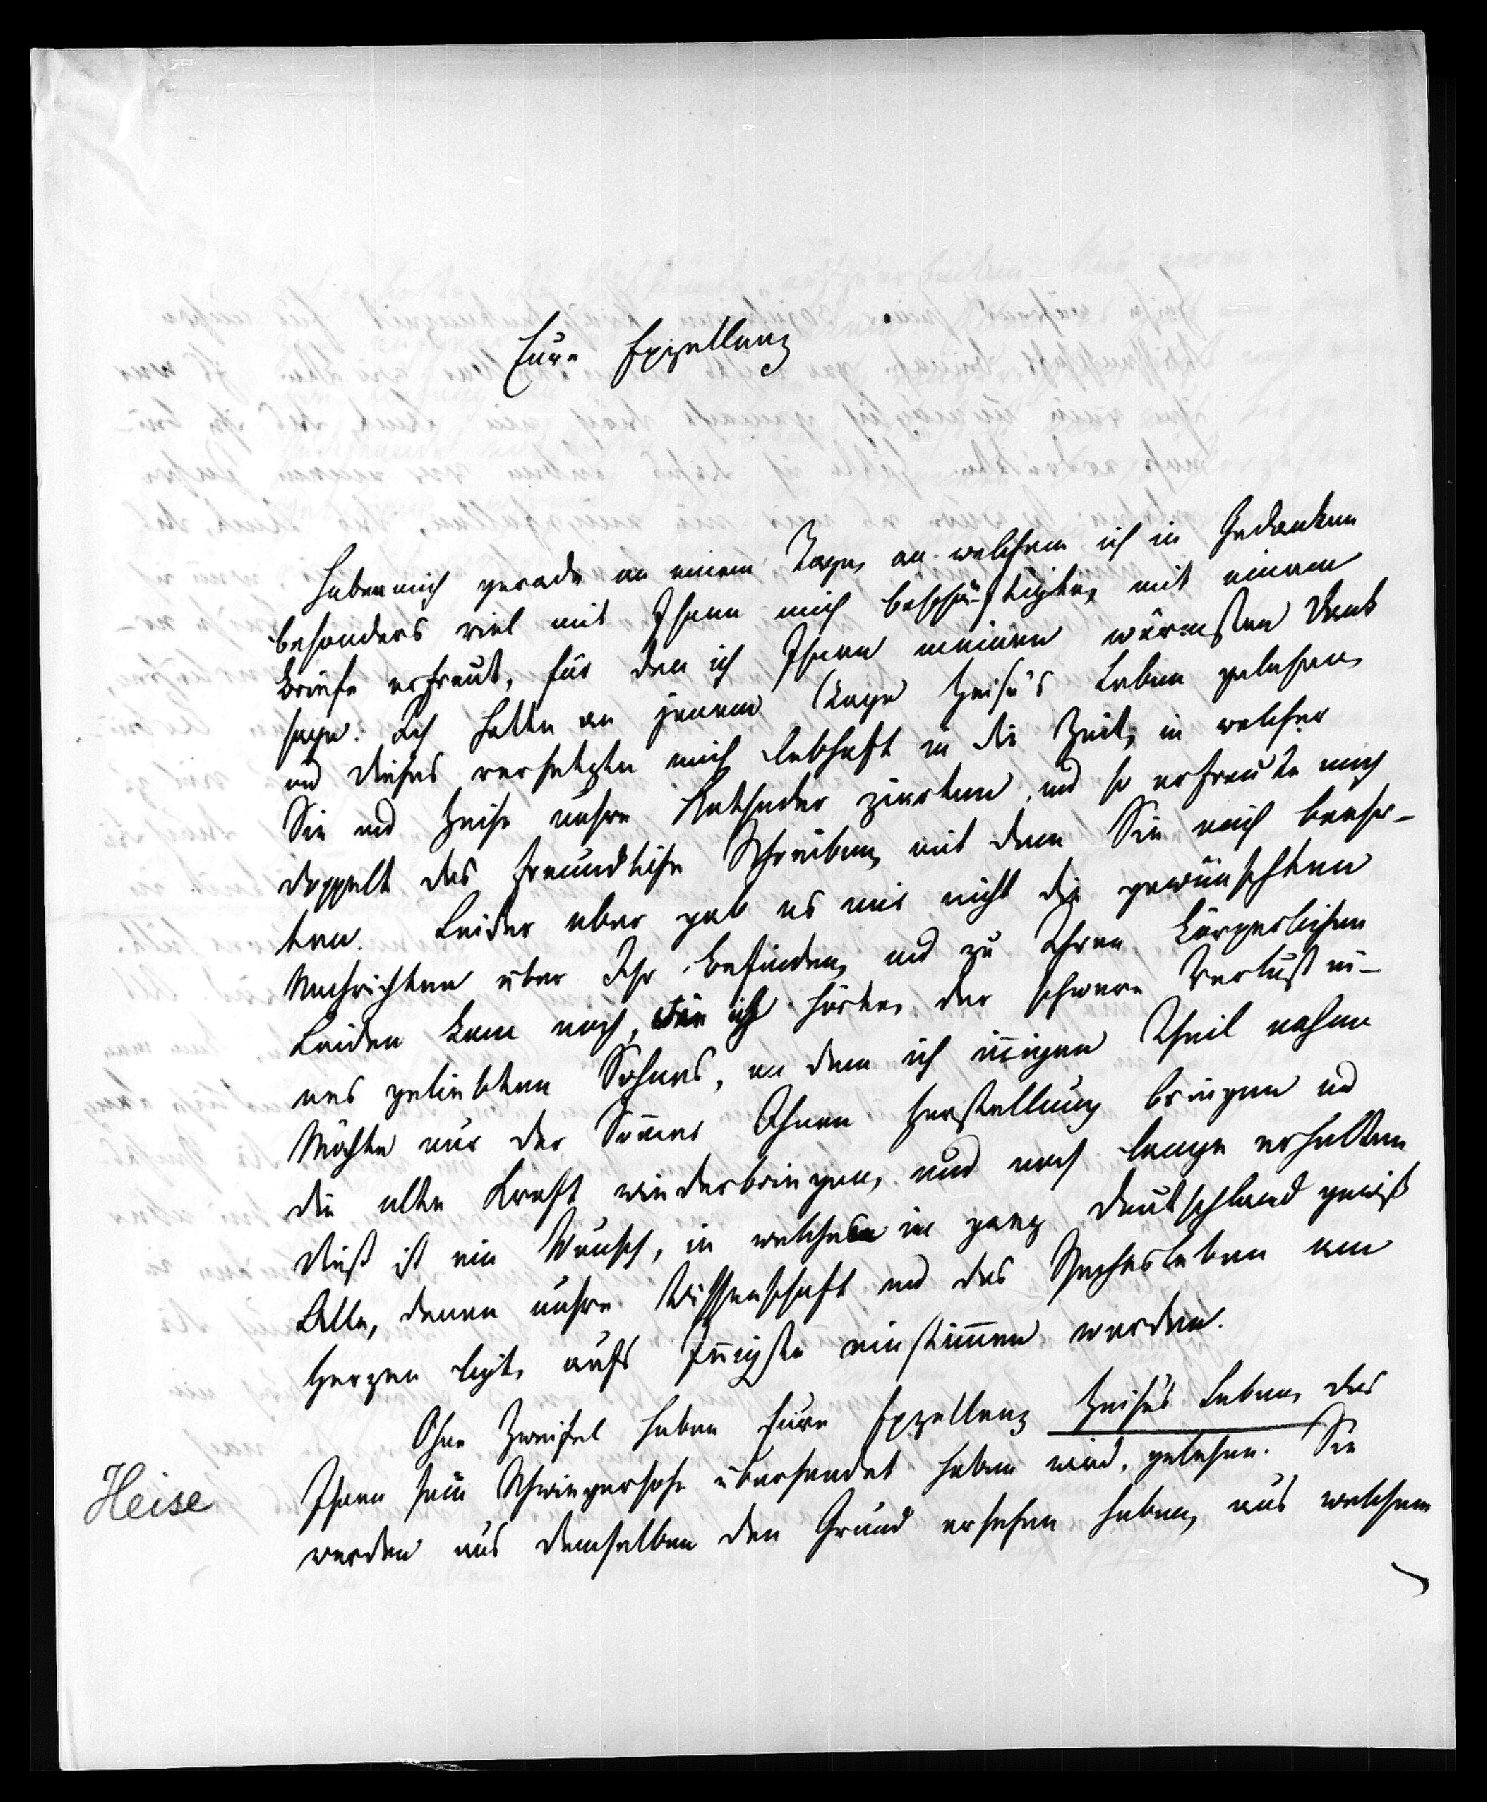 Eure Exzellenz
haben mich gerade an einem Tage, an welchem ich in Gedanken
besonders viel mit Ihnen mich beschäftigte, mit einem
Briefe erfreut, für den ich Ihnen meinen wärmsten Dank
sage. Ich hatte an jenem Tage Heise's Leben gelesen,
und dieses versetzte mich lebhaft in die Zeit, in welcher
Sie und Heise unsre Katheder zierten, und so erfreute mich
doppelt das freundliche Schreiben, mit dem Sie mich beehr-
ten. Leider aber gab es mir nicht die gewünschten
Nachrichten über Ihr Befinden, und zu Ihren körperlichen
Leiden kam noch, wie ich hörte, der schwere Verlust ei-
nes geliebten Sohnes, an dem ich innigen Theil nahm.
Möchte nur der Sommer Ihnen Herstellung bringen und
die alte Kraft wiederbringen, und noch lange erhalten,
dieß ist ein Wunsch, in welchen in ganz Deutschland gewiß
Alle, denen unsre Wissenschaft und das Rechtsleben am
Herzen ligt, aufs Innigste einstimmen werden.
Ohne Zweifel haben Eure Exzellenz Heise's Leben, das
Ihnen sein Schwiegersohn übersendet haben wird, gelesen. Sie
Heise
werden aus demselben den Grund ersehen haben, aus welchem